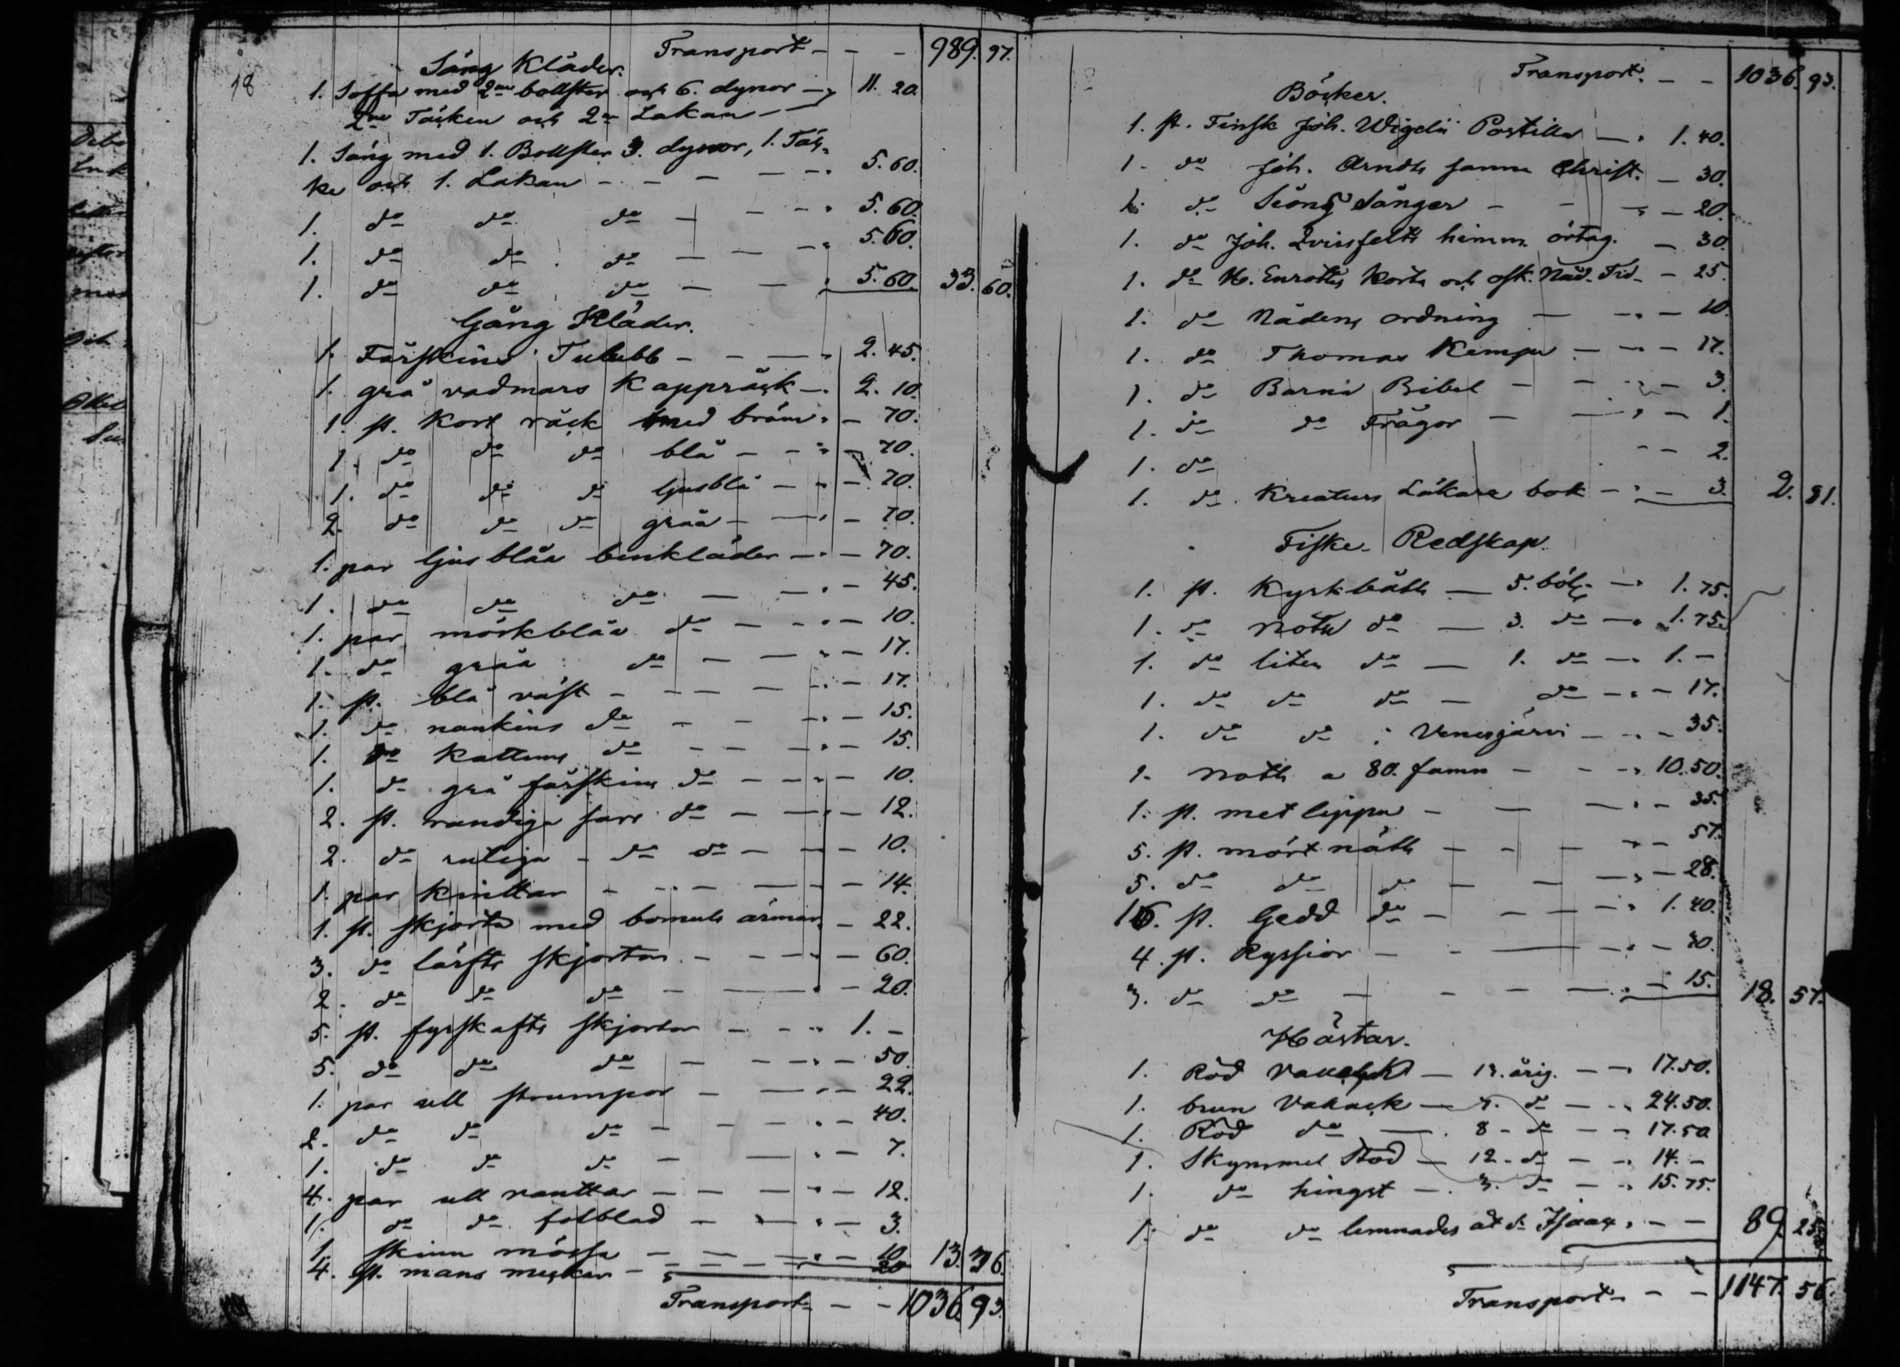 18
Transport - - - 989. 97.
Säng Kläder.
1. Soffa med 2ne bollster och 6. dynor - 11. 20.
2ne Täcken och 2ne Lakan -
1. Säng med 1. Bollster 3. dynor, 1. Täc-
ke och 1. Lakan - - - - - 5. 60.
1. do do do - - - 5. 60.
1. do do do - - - 5. 60.
1. do do do - - - 5. 60. 33. 60.
Gång Kläder.
1. Fårskins Tulubb - - - 2. 45.
1. grå vadmars Kappräck - 2. 10.
1. st. Kort räck med bräm - 70.
1. do do do blå - - - 70.
1. do do do ljusblå - - - 70.
2. do do do gråa - - - 70.
1. par ljusblåa benkläder - - 70.
1. do do do - - - 45.
1. par mörkblåa do - - - 10.
1. do gråa do - - - 17.
1. st. blå väst - - - - 17.
1. do nankins do - - - 15.
1. do Kattuns do - - - 15.
1. do grå fårskins do - - - 10.
2. st. randiga do - - - 12.
2. do rutiga - do do - - - 10.
1. par kinttar - - - - 14.
1. st. skjorta med bomuls ärmar - 22.
3. do lärfts skjortor - - - 60.
2. do do do - - - 20.
5. st. fyrskafts skjortor - - - 1. -
5. do do do - - - 50.
1. par ull strumpor - - - 22.
2. do do do - - - 40.
1. do do do - - - 7.
4. par ull vanttar - - - 12.
1. do do folblad - - - 3.
1. skinn mössa - - - 10. 13. 36.
4. st. mans - - - 20
Transport - - 1036. 93.
Transport. - - 1036. 93.
Böcker.
1. st. Finsk Joh. Wigelii Postilla - 1. 40.
1. do Joh. Arndts sanna Christ. - 30.
1. do Sions Sånger - - - 20.
1. do Joh. Qvirsfelts himm. örtag. - 30.
1. do H. Enrothes Korta och ofk. Nåd. Tid - 25.
1. do Nådens ordning - - - 10.
1. do Thomas Kempis - - - 17.
1. do Barna Bibel - - - 3.
1. do do Frågor - - - 1.
1. do - - 2.
1. do Kreaturs Läkare bok - - 3. 2. 81.
Fiske- Redskap.
1. st. Kyrkbåth - 5. böl. - 1. 75.
1. do Noth do - 3. do - 1. 75.
1. do liten do - 1. do - 1. -
1. do do do - do - - 17.
1. do do i Venesjärvi - - - 35.
1. Noth a 80. famn - - - 10. 50.
1. st. met lippa - - - 35.
5. st. mört näth - - - 57.
5. do do do - - - 28.
16. st. Gedd do - - - 1. 40.
4. st. Ryssior - - - 30.
3. do do - - - 15. 18. 57.
Hästar.
1. Röd Vallack - 13. årig. - - 17. 50.
1. brun Vallack - 7. do - - 24. 50.
1. Röd do - 8 - do - - 17. 50.
1. Skymmel Stod - 12 - do - - 14. -
1. do hingst - 3. do - - 15. 75.
1. do do lemnades åt Isaax. - - 89. 25
Transport - - 1147. 56.